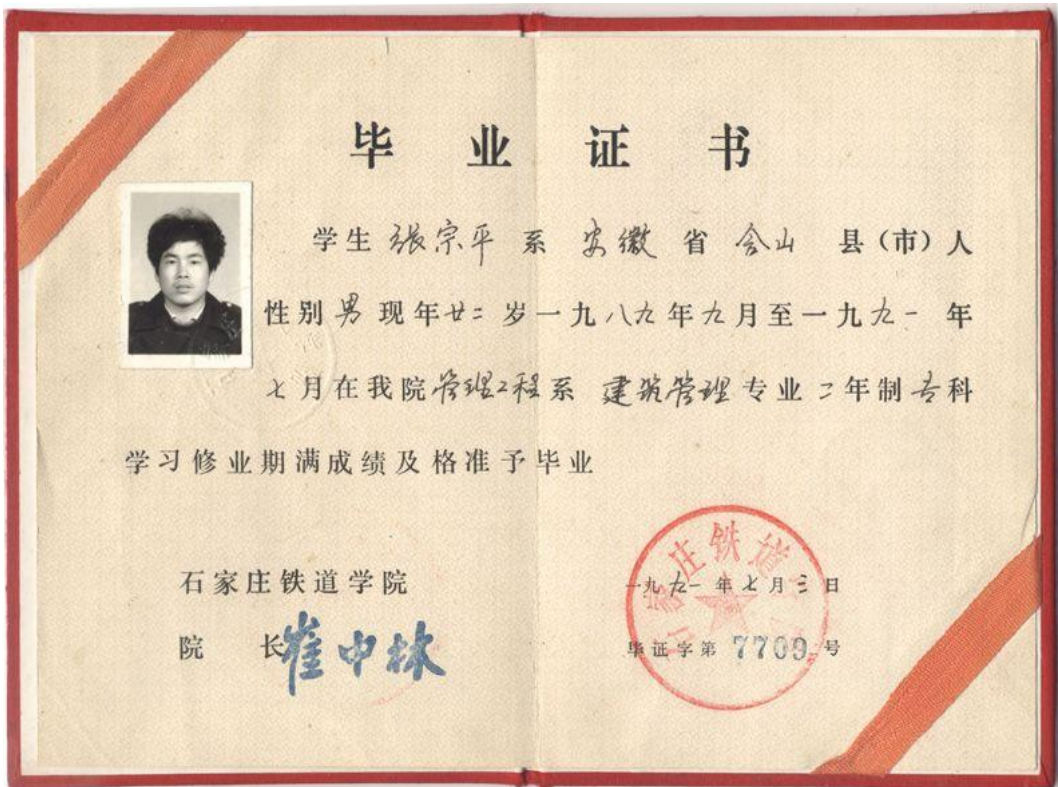 毕业证书
学生 张宗平 系 安徽 省 含山 县(市)人
性别 男 现年 廿二 岁一九八九年九月至一九九一 年
七月在我院管理工程系 建筑管理专业二年制专科
学习修业期满成绩及格准予毕业
石家庄铁道学院
院 长 崔中林
一九九一年七月三日
毕证字第 7709 号
石家庄铁道学院